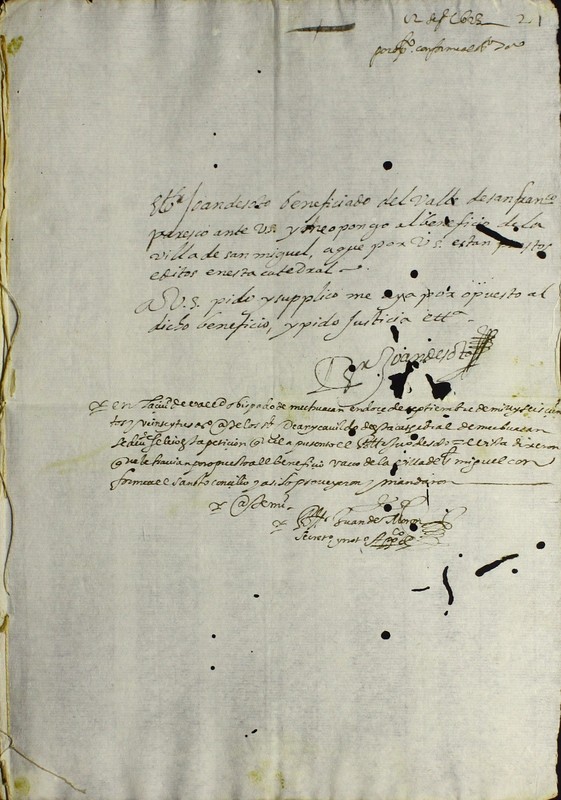 12 de 7bre 21
por opto. conforme al sto. co
El Br Joan de soto beneficiado del Valle de san franco
paresco ante V.s. y me opongo al beneficio de la
villa de san miguel, a que por V.s. estan puestos
editos en esta catedral
A V.s. pido y supplico me aya por opuesto al
dicho beneficio, y pido Justicia etta.
Br Joan de soto
en la ciud. de Valld. obispado de mechuacan en doce de septiembre de mil y seis cien
tos y años los sres. Dean y cavildo desta catedral de mechuacan
sede vacte. se leio esta petición que la presento el Br Juo. de soto = e vista dixeron
que le havian por opuesto al beneficio vaco de la villa de s. miguel con
forme al sancto concilio y assi lo proveyeron y mandaron
Ante mi
Br Juan de
secreto. y noto. Appco